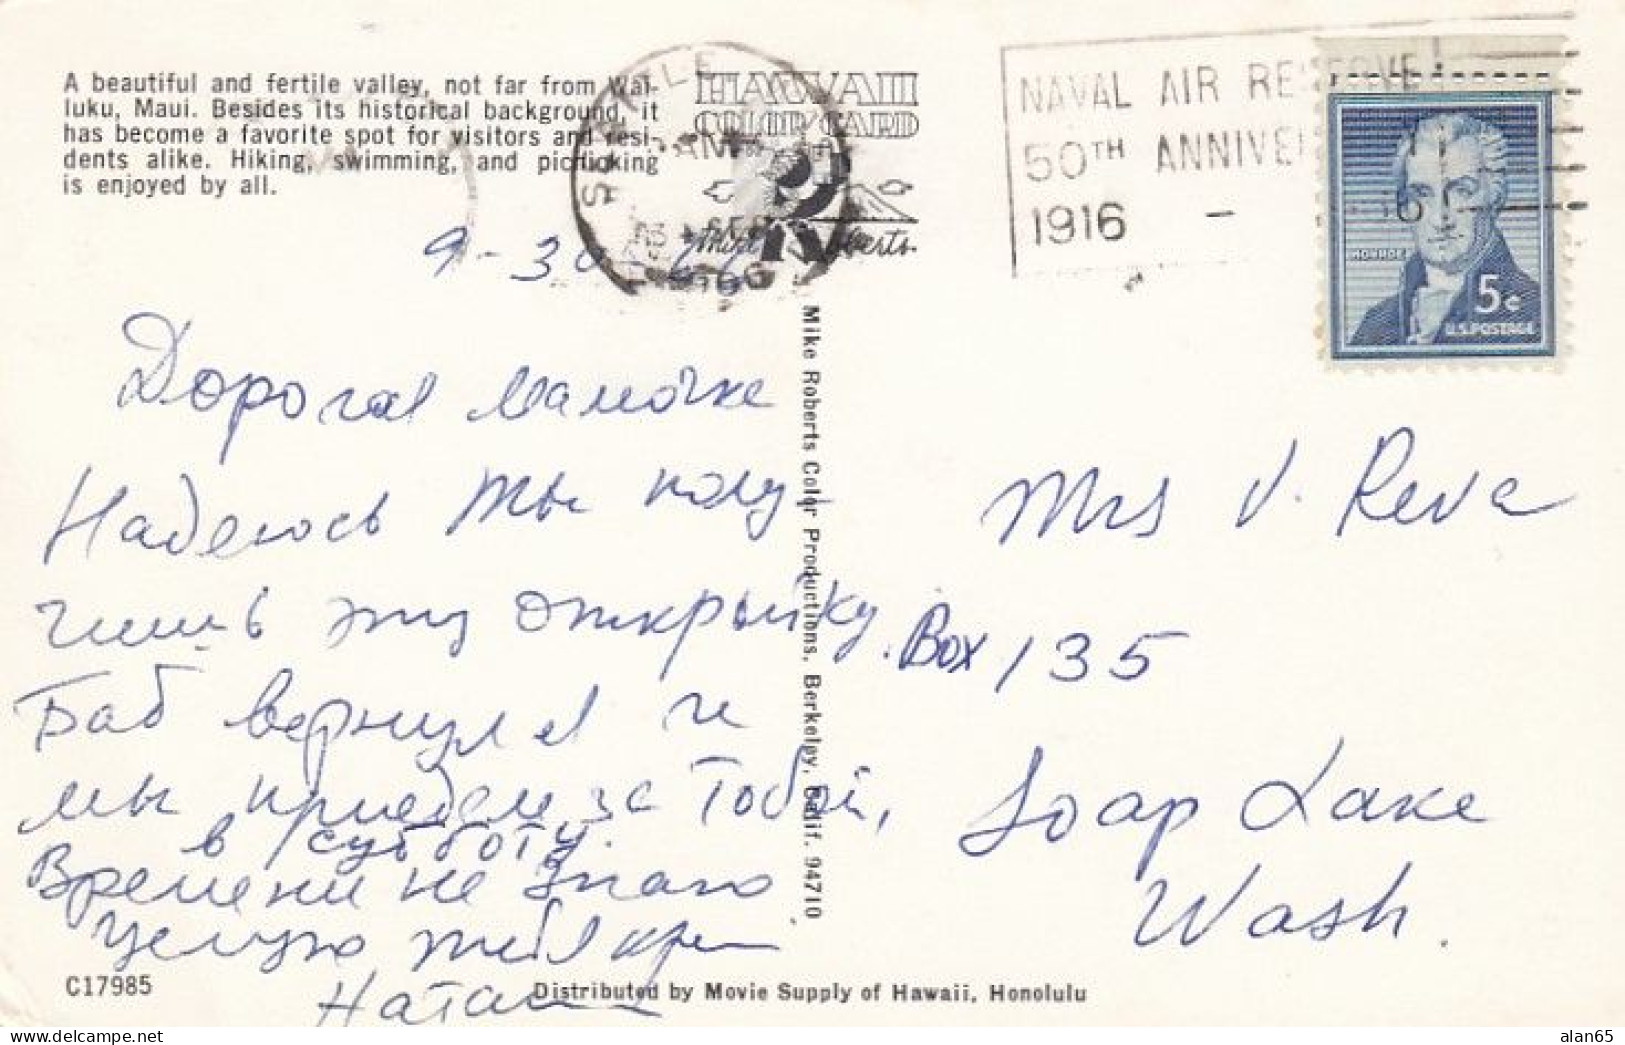 A beautiful and fertile valley, not far from Wai-
luku, Maui. Besides its historical background, it
has become a favorite spot for visitors and resi-
dents alike. Hiking, swimming, and picnicking
is enjoyed by all.
HAWAII
COLOR CARD
Mike Roberts
SEATTLE
AM
SEP
1966
NAVAL AIR RESERVE
50TH ANNIVE
1916 -
MONROE
5¢
U.S. POSTAGE
9-30
Дорогая Мамочка
Надеюсь ты полу-
чишь эту открытку.
Боб вернулся и
мы приедем за Тобой,
в субботу.
Времени не знаю
Целую тебя
Наташа
Mrs V. Reva
Box 135
Soap Lake
Wash.
Mike Roberts Color Productions, Berkeley, Calif. 94710
C17985
Distributed by Movie Supply of Hawaii, Honolulu
alan65